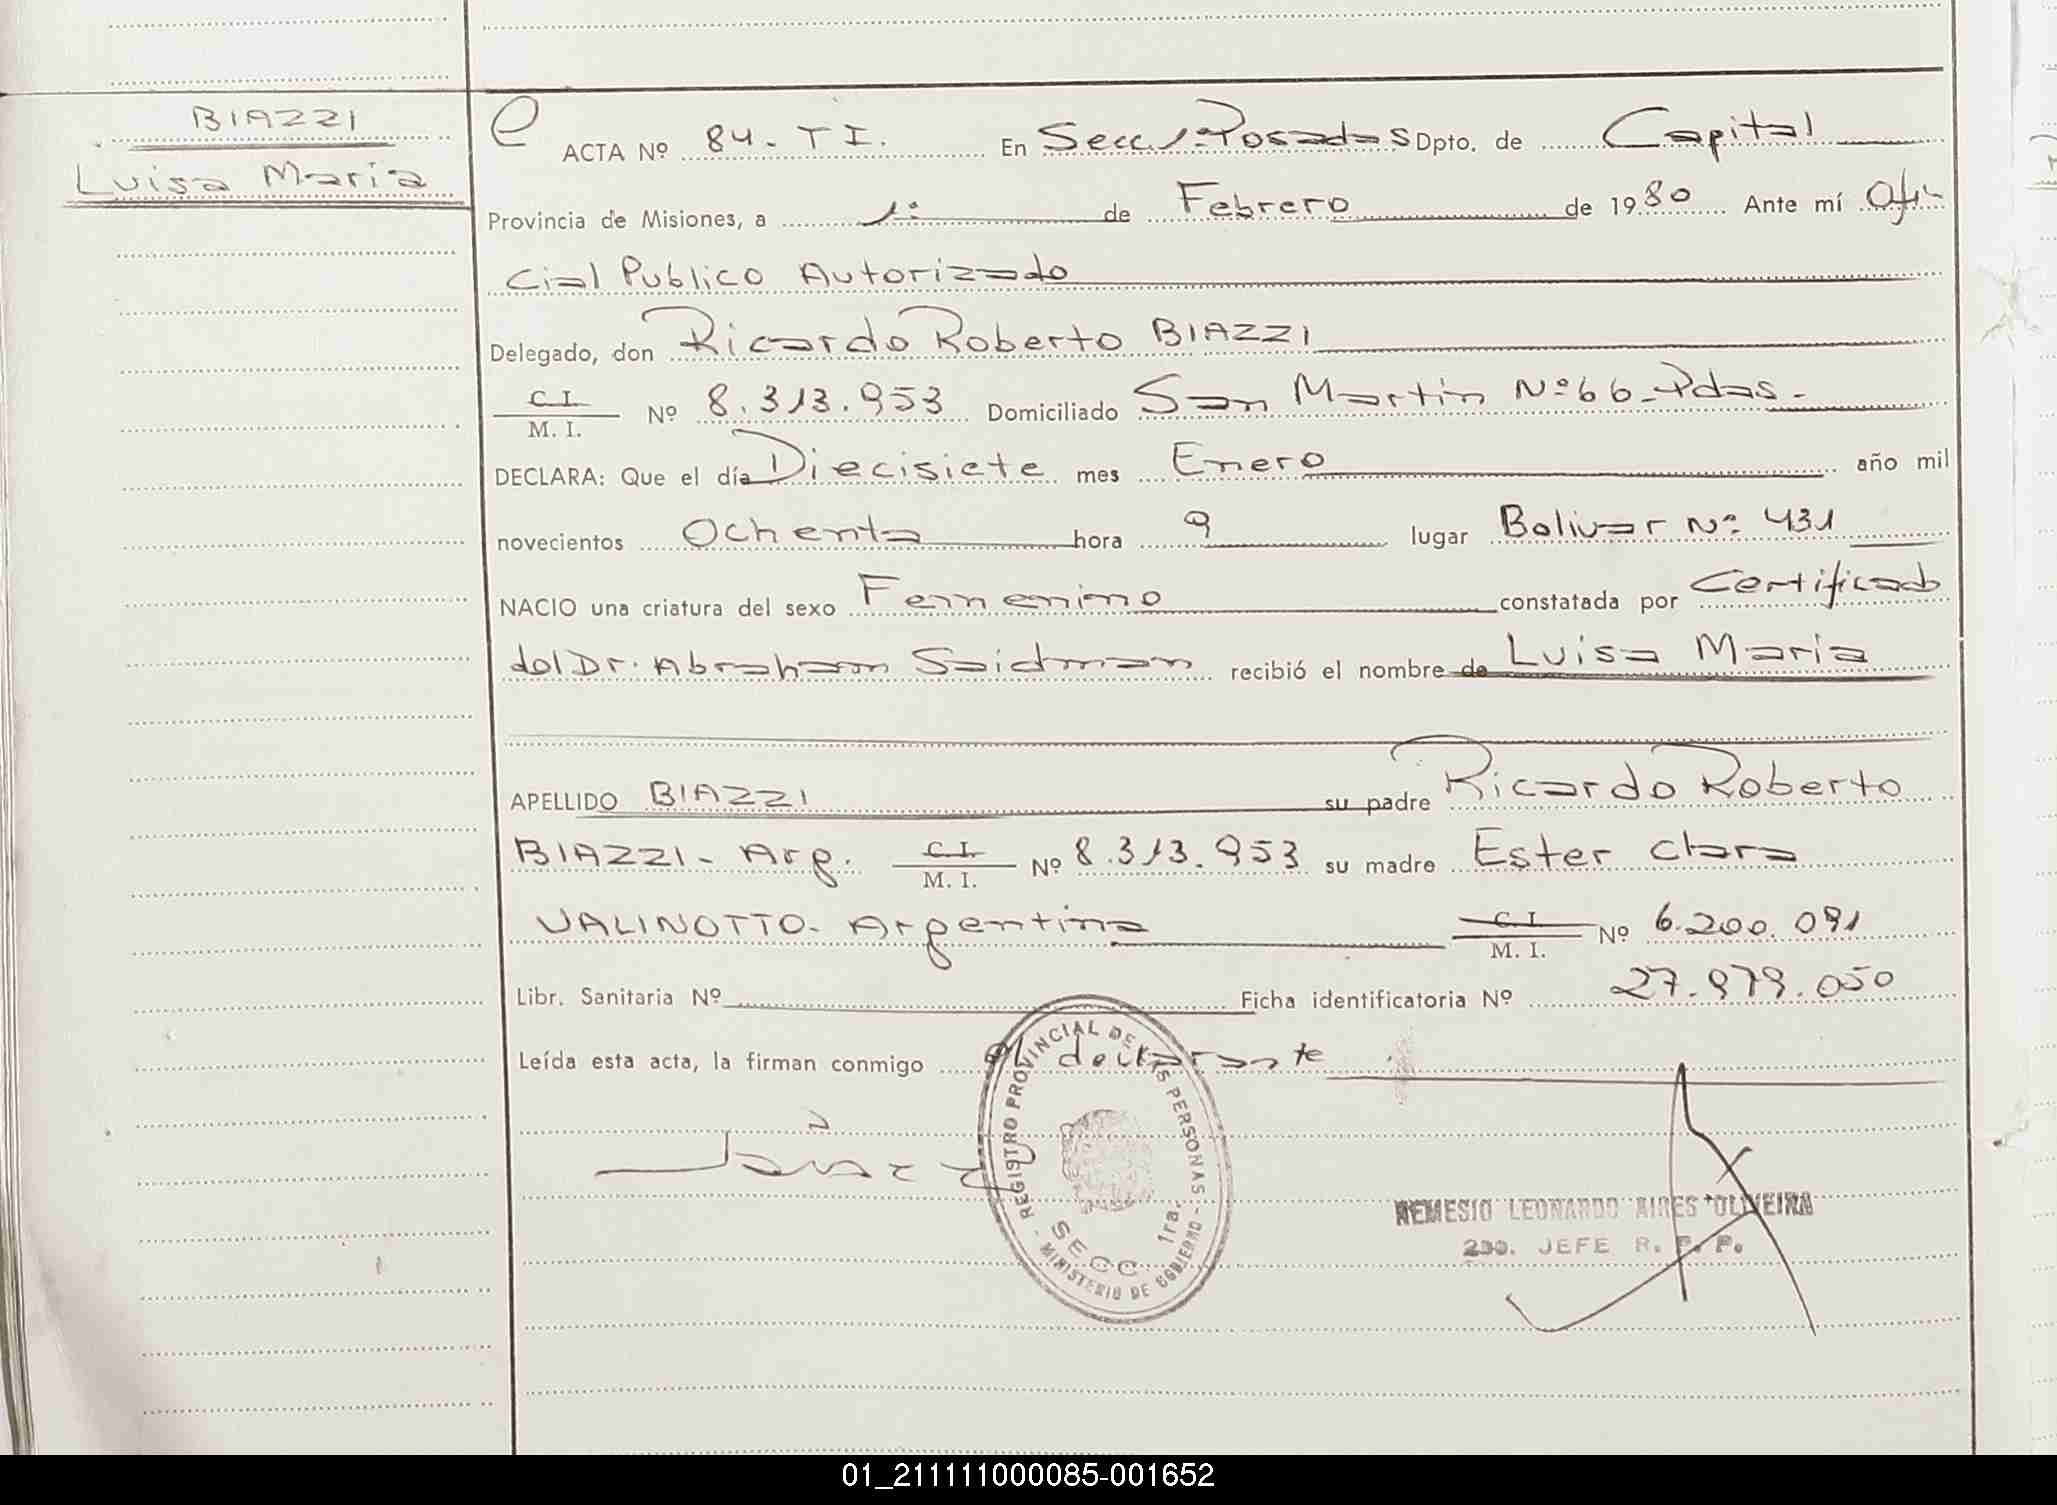 BIAZZI
Luisa Maria
e ACTA Nº 84. T I. En Secc. 1ª Posadas Dpto. de Capital
Provincia de Misiones, a 1º de Febrero de 1980 Ante mí Ofi-
cial Publico Autorizado
Delegado, don Ricardo Roberto BIAZZI
C. I.
M. I. Nº 8.313.953 Domiciliado San Martin Nº 66 - Pdas.-
DECLARA: Que el día Diecisiete mes Enero año mil
novecientos Ochenta hora 9 lugar Bolivar Nº 431
NACIO una criatura del sexo Femenino constatada por Certificado
del Dr. Abraham Saidman recibió el nombre de Luisa Maria
APELLIDO BIAZZI su padre Ricardo Roberto
BIAZZI - Arg. C. I. M. I. Nº 8.313.953 su madre Ester Clara
VALINOTTO - Argentina C. I. M. I. Nº 6.200.091
Libr. Sanitaria Nº Ficha identificatoria Nº 27.979.050
Leída esta acta, la firman conmigo el declarante
REGISTRO PROVINCIAL DE LAS PERSONAS - MINISTERIO DE GOBIERNO -
SECC. 1ra.
NEMESIO LEONARDO AIRES OLIVEIRA
2do. JEFE R. P. P.
01_211111000085-001652